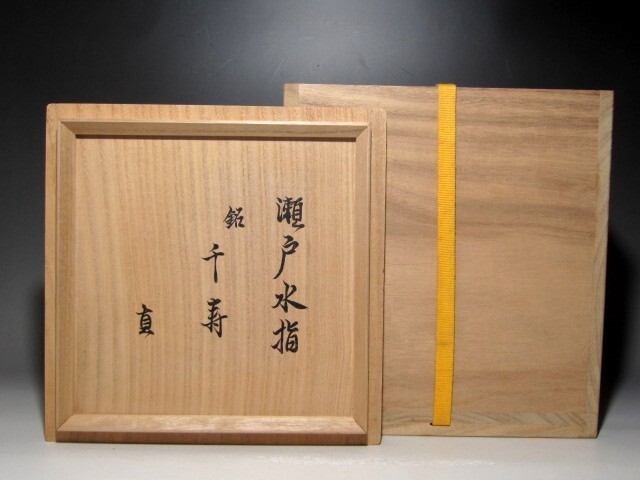 瀬戸水指
銘 千寿
直